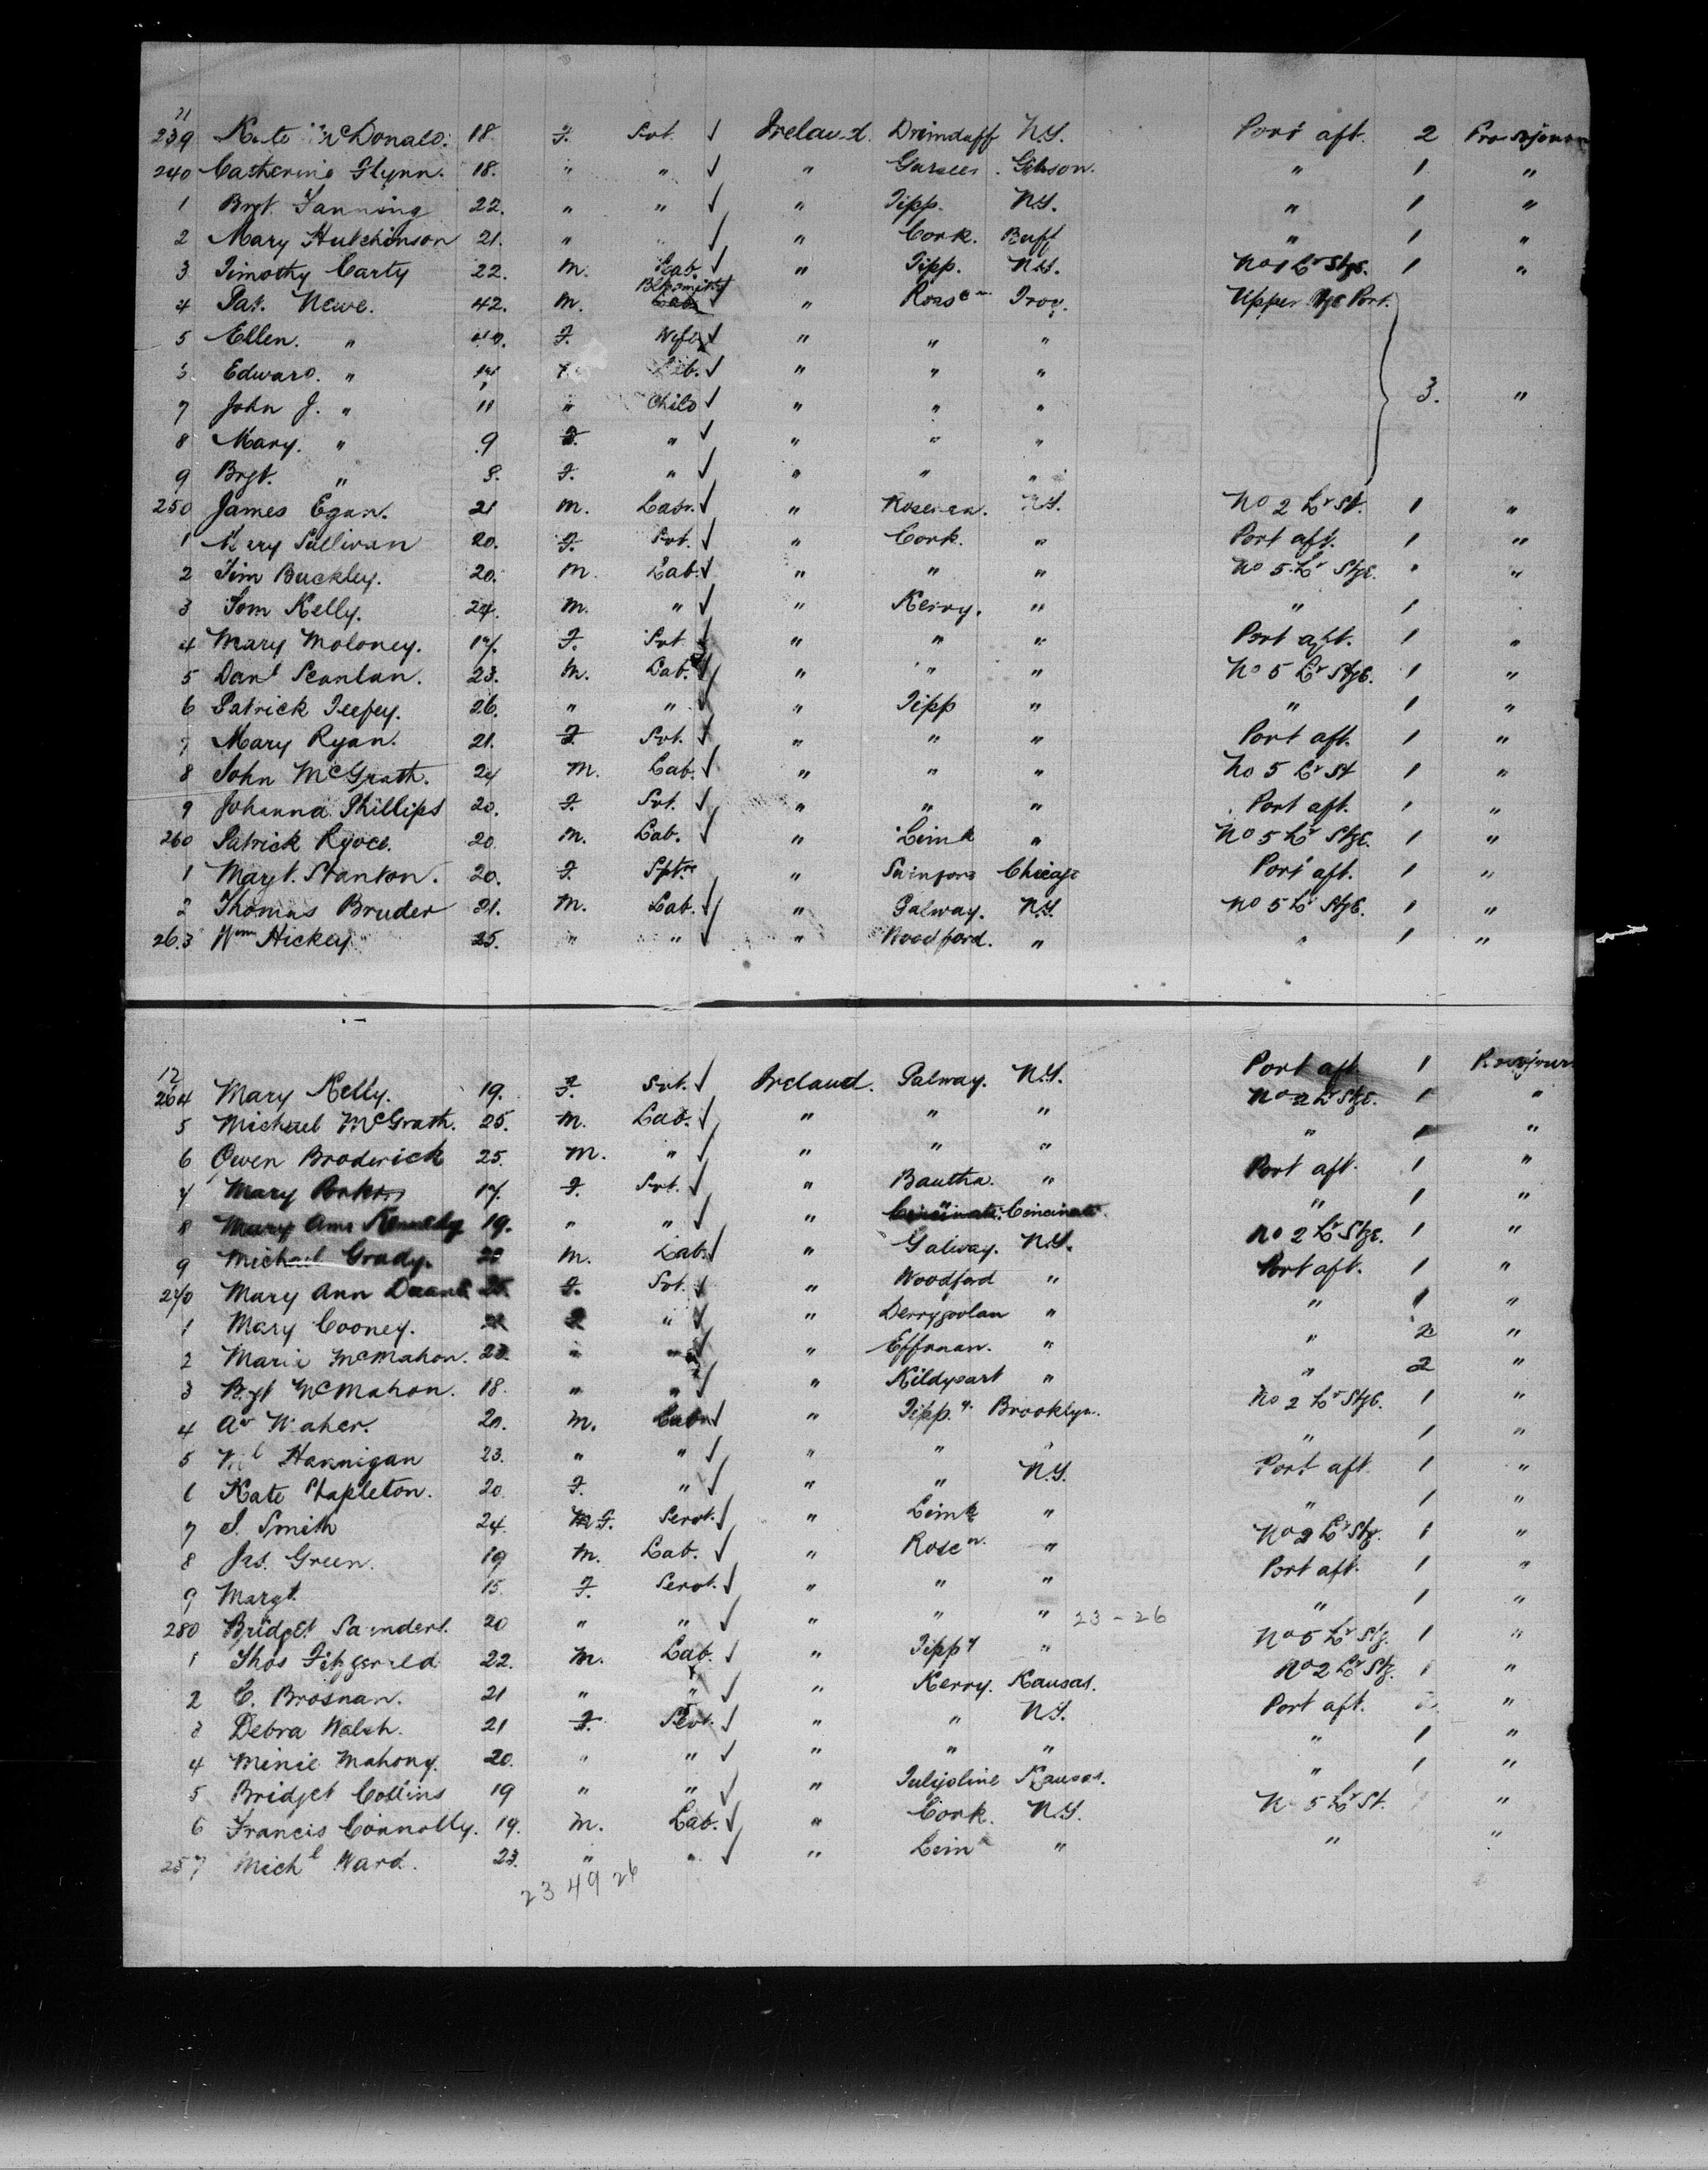 11
239 Kate McDonald. 18 F. Svt. ✓ Ireland. Drimduff N.Y. Port aft. 2
240 Catherine Flynn. 18. " " ✓ " Gibson. " 1 "
1 Brgt. Fanning 22. " " ✓ " Tipp. N.Y. " 1 "
2 Mary Hutchinson 21. " ✓ " Cork. Buff " 1 "
3 Timothy Carty 22. M. Lab. ✓ " Tipp. N.Y. No 1 Lr Stge. 1 "
4 Pat. Newe. 42. M. Blksmith ✓ " Rosc Troy. Upper Stge Port.
5 Ellen. " 40. F. Wife ✓ " " "
6 Edward. " Lab. ✓ " " "
7 John J. " 11 " Child ✓ " " " 3. "
8 Mary. " 9 F. " ✓ " " "
9 Brgt. " 8. F. " ✓ " " "
250 James Egan. 21 M. Labr. ✓ " N.Y. No 2 Lr St. 1 "
1 Mary Sullivan 20. F. Svt. ✓ " Cork. " Port aft. 1 "
2 Tim Buckley. 20. M. Lab. ✓ " " " No 5 Lr Stge. " "
3 Tom Kelly. 24. M. " ✓ " Kerry. " " 1
4 Mary Moloney. 17. F. Svt ✓ " " " Port aft. 1 "
5 Danl Scanlan. 23. M. Lab. ✓ " " " No 5 Lr Stge. 1 "
6 Patrick Teefey. 26. " " ✓ " Tipp " " 1 "
7 Mary Ryan. 21. F. Svt. ✓ " " " Port aft. 1 "
8 John McGrath. 24 M. Lab. ✓ " " " No 5 Lr St 1 "
9 Johanna Phillips 20. F. Svt. ✓ " " " Port aft. 1 "
260 Patrick Ryoce. 20 M. Lab. ✓ " Limk " No 5 Lr Stge. 1 "
1 Margt. Stanton. 20. F. " Chicago Port aft. 1 "
2 Thomas Bruder 21. M. Lab. ✓ " Galway. N.Y. No 5 Lr Stge. 1 "
263 Wm Hickey 25. " " ✓ " Woodford. " " 1 "
12
264 Mary Kelly. 19. F. Svt. ✓ Ireland. Galway. N.Y. Port aft 1
5 Michael McGrath. 25. M. Lab. ✓ " " " No 2 Lr Stge. 1 "
6 Owen Broderick 25. M. " ✓ " " " " 1 "
7 Mary 17. F. Svt. ✓ " Bautha. " Port aft. 1 "
8 Mary Ann Kennedy 19. " " ✓ " Cincinati. Cincinati. " 1 "
9 Michael Grady. 20 M. Lab. ✓ " Galway. N.Y. No 2 Lr Stge. 1 "
270 Mary Ann Duane F. Svt. ✓ " Woodford " Port aft. 1 "
1 Mary Cooney. F " ✓ " Derrygoolan " " 1 "
2 Maria McMahon. 23. " " ✓ " Effrnan. " " 2 "
3 Bgt McMahon. 18. " " ✓ " Kildysart " " 2 "
4 Maher. 20. M. Labr ✓ " Tippy. Brooklyn. No 2 Lr Stge. 1 "
5 Ml Hannigan 23. " " ✓ " " " " 1 "
6 Kate Stapleton. 20. F. " ✓ " " N.Y. Port aft. 1 "
7 S. Smith 24. M F. Servt. ✓ " Limk " " 1 "
8 Jas. Green. 19 M. Lab. ✓ " Roscn. " No 2 Lr Stg. 1 "
9 Margt. " 15. F. Servt. ✓ " " " Port aft. 1 "
280 Bridget Saunders. 20 " " ✓ " " " 23-26 " 1 "
1 Thos Fitzgerald 22. M. Lab. ✓ " Tippy " No 5 Lr Stg. 1 "
2 C. Brosnan. 21 " " ✓ " Kerry. Kansas. No 2 Lr Stg. 1 "
3 Debra Walsh. 21 F. Servt. ✓ " " N.Y. Port aft. "
4 Minie Mahony. 20. " " ✓ " " " " 1 "
5 Bridget Collins 19 " " ✓ " Kansas. " 1 "
6 Francis Connolly. 19. M. Lab. ✓ " Cork. N.Y. No 5 Lr St. "
257 Michl Ward. 23. " " ✓ " Limk " " "
23 49 26